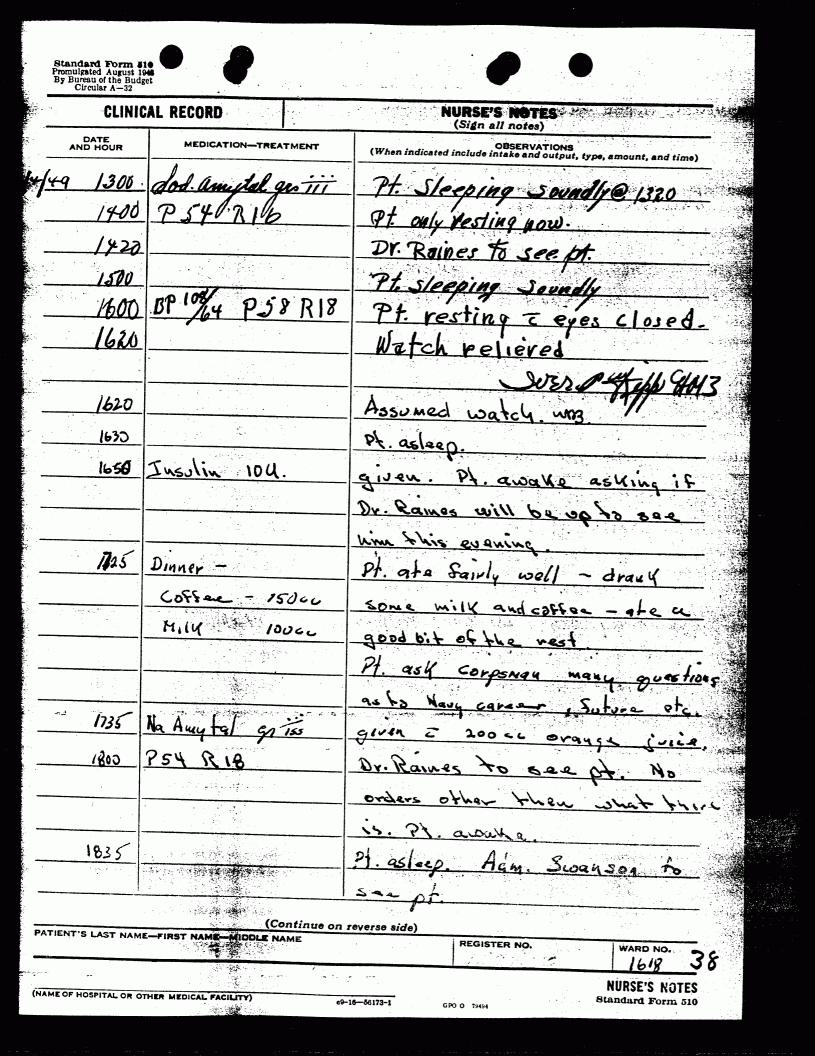 Standard Form 510
Promulgated August 1948
By Bureau of the Budget
Circular A—32
CLINICAL RECORD
NURSE'S NOTES
(Sign all notes)
DATE AND HOUR
MEDICATION—TREATMENT
OBSERVATIONS
(When indicated include intake and output, type, amount, and time)
4/49 1300 Sod. Amytal grs iii Pt. Sleeping soundly @ 1320
1400 P 54 R 16 Pt only resting now.
1420 Dr. Raines to see pt.
1500 Pt sleeping soundly
1600 BP 108/64 P 58 R 18 Pt. resting c̄ eyes closed.
1620 Watch relieved
HM3
1620 Assumed watch.
1630 Pt. asleep.
1650 Insulin 10 U. given. Pt. awake asking if
Dr. Raines will be up to see
him this evening.
1725 Dinner — Pt. ate fairly well – drank
Coffee – 150cc some milk and coffee – ate a
Milk 100cc good bit of the rest
Pt. ask corpsman many questions
as to Navy career, future etc.
1735 Na Amytal gr iiiss given c̄ 200cc orange juice.
1800 P 54 R 18 Dr. Raines to see pt. No
orders other then what there
is. Pt. awake.
1835 Pt. asleep. Adm. Swanson to
see pt.
(Continue on reverse side)
PATIENT'S LAST NAME—FIRST NAME—MIDDLE NAME
REGISTER NO.
WARD NO.
1618
38
(NAME OF HOSPITAL OR OTHER MEDICAL FACILITY)
c9—16—56173-1
GPO O 79494
NURSE'S NOTES
Standard Form 510